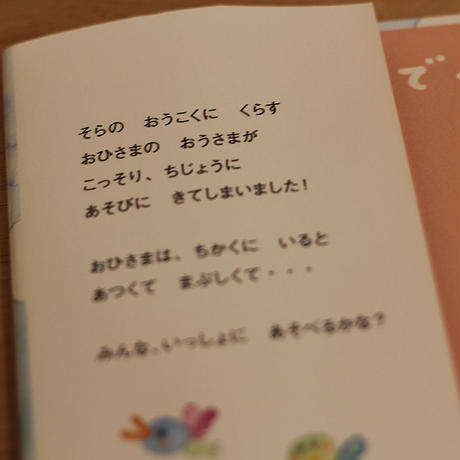 そらの　おうこくに　くらす
おひさまの　おうさまが
こっそり、ちじょうに
あそびに　きてしまいました！
おひさまは、ちかくに　いると
あつくて　まぶしくて・・・
みんな、いっしょに　あそべるかな？
で